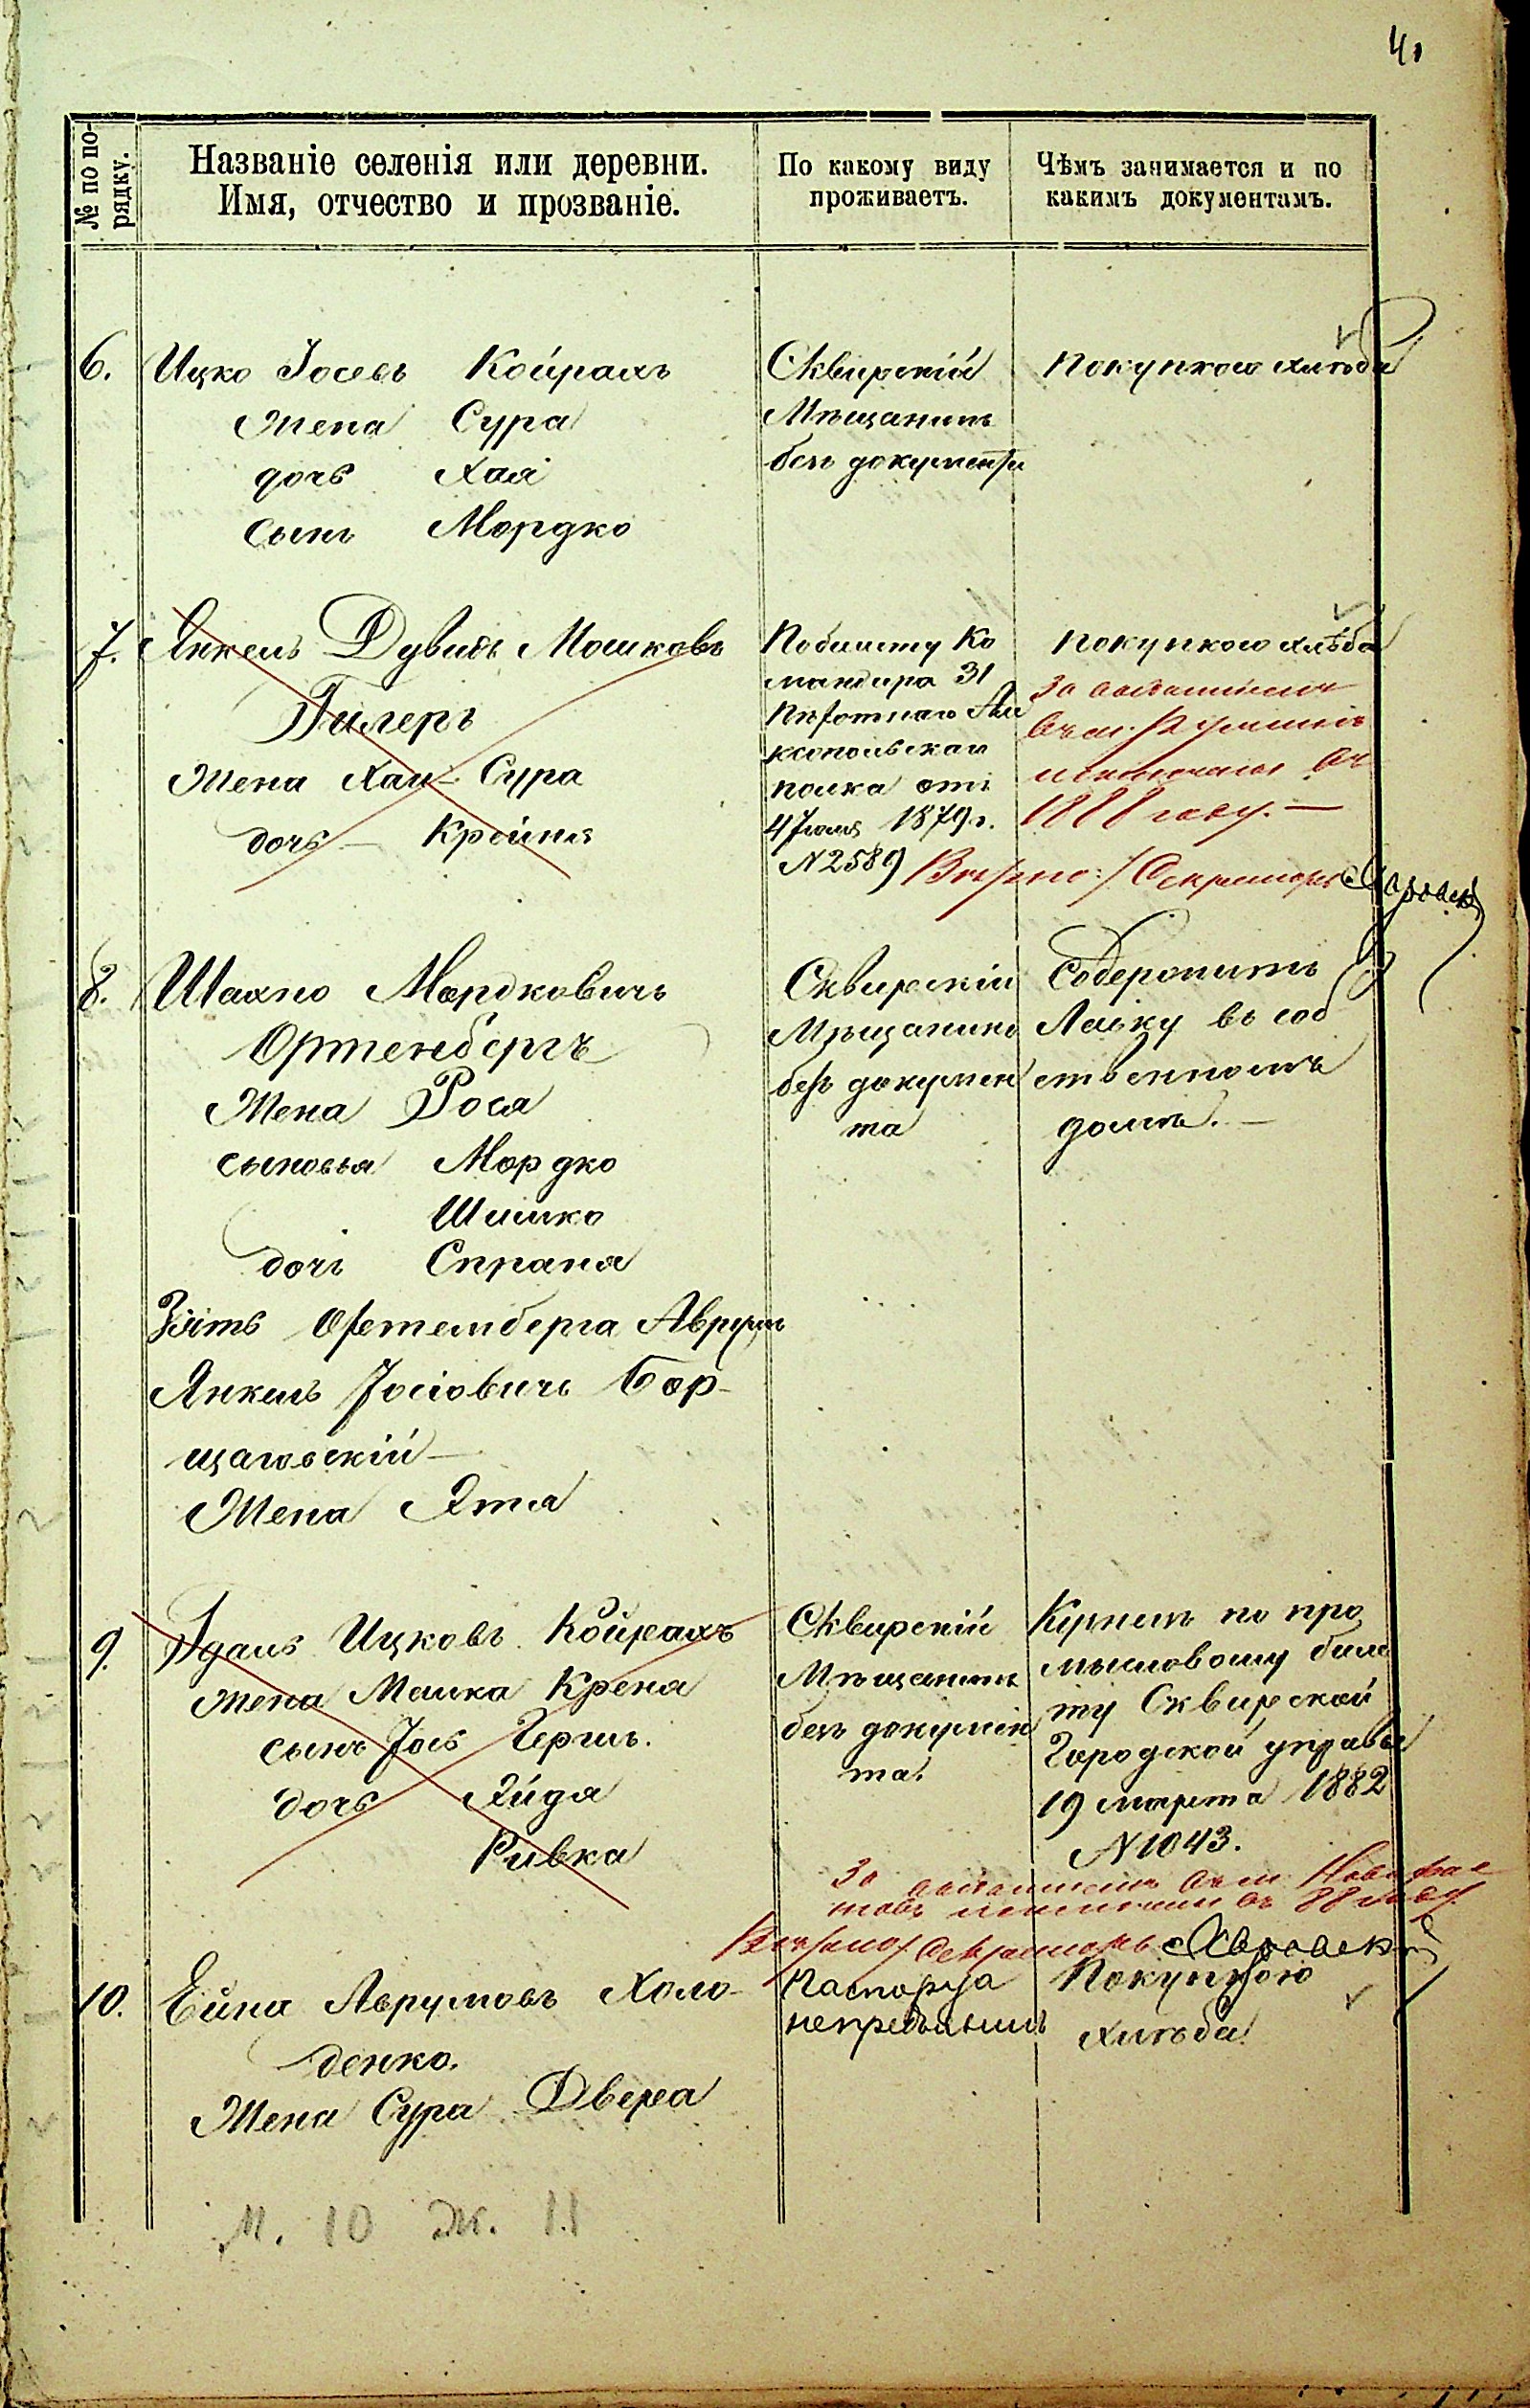 4.
№ по по-
рядку.
Названіе селенія или деревни.
Имя, отчество и прозваніе.
По какому виду
проживаетъ.
Чѣмъ занимается и по
какимъ документамъ.
6.
Ицко Іосевъ Койрахъ
жена Сура
дочь Хая
сынъ Мордко
Сквирскій
Мѣщанинъ
безъ документа
покупкою хлѣба
7.
Янкель Дувидъ Мошковъ
Гилеръ
Жена Хая-Сура
дочь – Крейня
По билету Ко
мандира 31
Пѣхотнаго Але
ксопольскаго
полка отъ
4 Іюля 1879 г.
N 2589
покупкою хлѣба
За
въ м.
исключены въ
1888 году. —
Вѣрно: Секретарь
8.
Шахно Мордковичъ
Ортенбергъ
Жена Рося
сыновья Мордко
Шимко
дочь Спраня
Зять Ортемберга Аврумъ
Янкель Іосіовичъ Бор-
щаговскій —
Жена Этя
Сквирскій
Мѣщанинъ
безъ докумен
та
Содержитъ
Лавку въ соб
ственномъ
домѣ. —
9.
Ицковъ Койрахъ
жена Малка Крена
сынъ Іось Гершъ.
дочь Хайдя
Ривка
Сквирскій
Мѣщанинъ
безъ докумен
та.
Купецъ по про
мысловому биле
ту Сквирской
Городской управы
19 марта 1882
N 1043.
За въ м.
исключены въ 88 году.
Вѣрно: Секретарь
10.
Ейна Аврумовъ Холо-
денко.
Жена Сура Двера
Паспорта
непредъявилъ
Покупкою
хлѣба
М. 10 Ж. 11